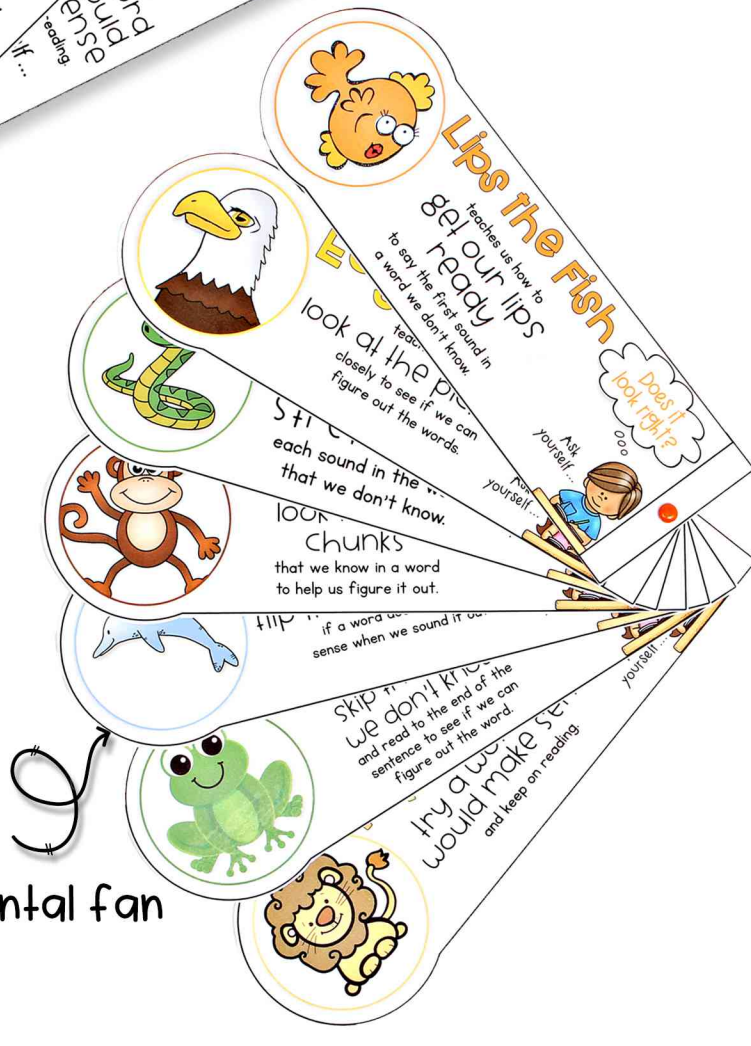 ould
ense
eading.
Lips the Fish
teaches us how to
get our lips
ready
to say the first sound in
a word we don't know.
Does it
look right?
Ask
yourself...
look at the pic
closely to see if we can
figure out the words.
yourself...
each sound in the
that we don't know.
chunks
that we know in a word
to help us figure it out.
if a word
sense when we sound it
skip
we don't
and read to the end of the
sentence to see if we can
figure out the word.
try a
would make
and keep on reading.
yourself...
ntal fan